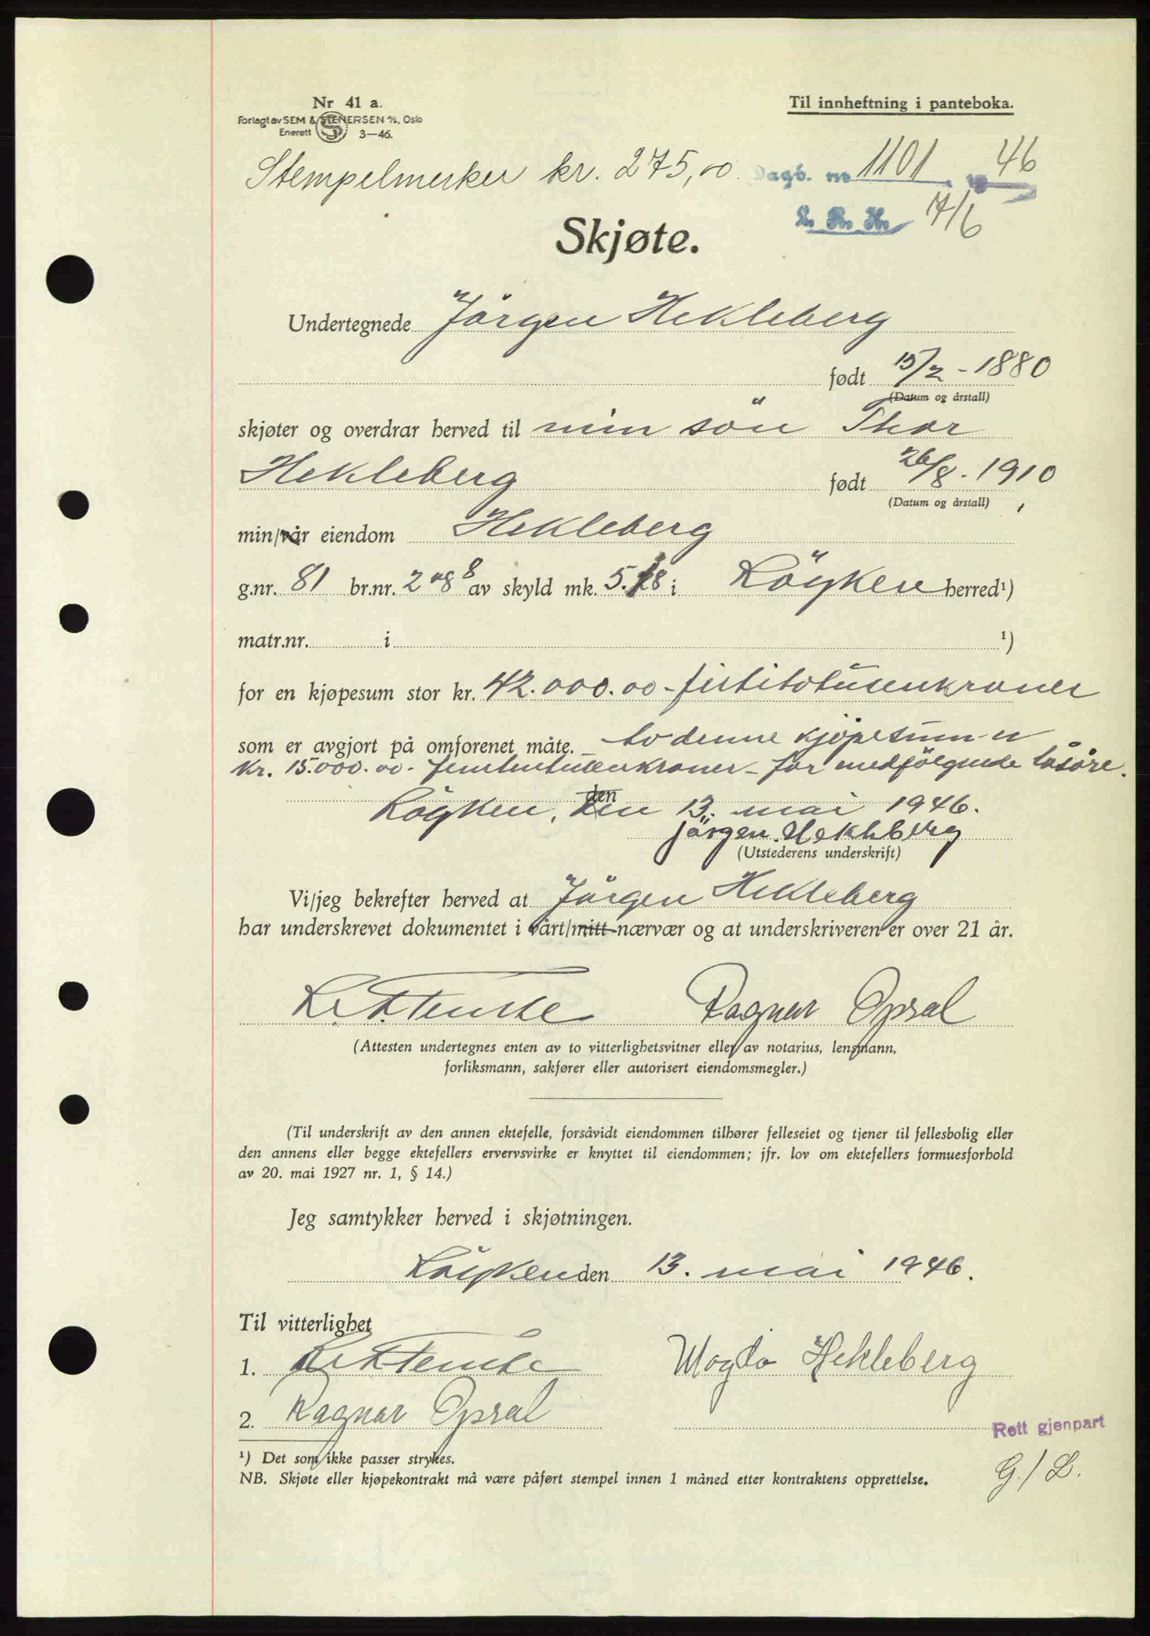 Nr 41 a.
Til innheftning i panteboka.
Forlagt av SEM & STENERSEN A/S, Oslo
Enerett S 3—46.
Stempelmerker kr. 275,00 Dagb. nr 1101 19 46
L. R. H. 7/6
Skjøte.
Undertegnede Jörgen Hekleberg
født 15/2 - 1880
(Datum og årstall)
skjøter og overdrar herved til min sön Thor
Hekleberg født 26/8 - 1910
(Datum og årstall)
min/vår eiendom Hekleberg
g.nr. 81 br.nr. 2 og 8 av skyld mk. 5.18 i Röyken herred¹)
matr.nr. i ¹)
for en kjøpesum stor kr. 42.000.00 - firtitotusenkroner
som er avgjort på omforenet måte. - denne kjöpesum er
kr. 15.000.00 - femtentusenkroner - for medfölgende lösöre.
Röyken, den 13. mai 1946.
Jörgen Hekleberg
(Utstederens underskrift)
Vi/jeg bekrefter herved at Jörgen Hekleberg
har underskrevet dokumentet i vårt/mitt nærvær og at underskriveren er over 21 år.
Ragnar Opsal
(Attesten undertegnes enten av to vitterlighetsvitner eller av notarius, lensmann,
forliksmann, sakfører eller autorisert eiendomsmegler.)
(Til underskrift av den annen ektefelle, forsåvidt eiendommen tilhører felleseiet og tjener til fellesbolig eller
den annens eller begge ektefellers ervervsvirke er knyttet til eiendommen; jfr. lov om ektefellers formuesforhold
av 20. mai 1927 nr. 1, § 14.)
Jeg samtykker herved i skjøtningen.
Röyken den 13. mai 1946.
Til vitterlighet
1. Magda Hekleberg
2. Ragnar Opsal
Rett gjenpart
¹) Det som ikke passer strykes.
NB. Skjøte eller kjøpekontrakt må være påført stempel innen 1 måned etter kontraktens opprettelse.
G./L.